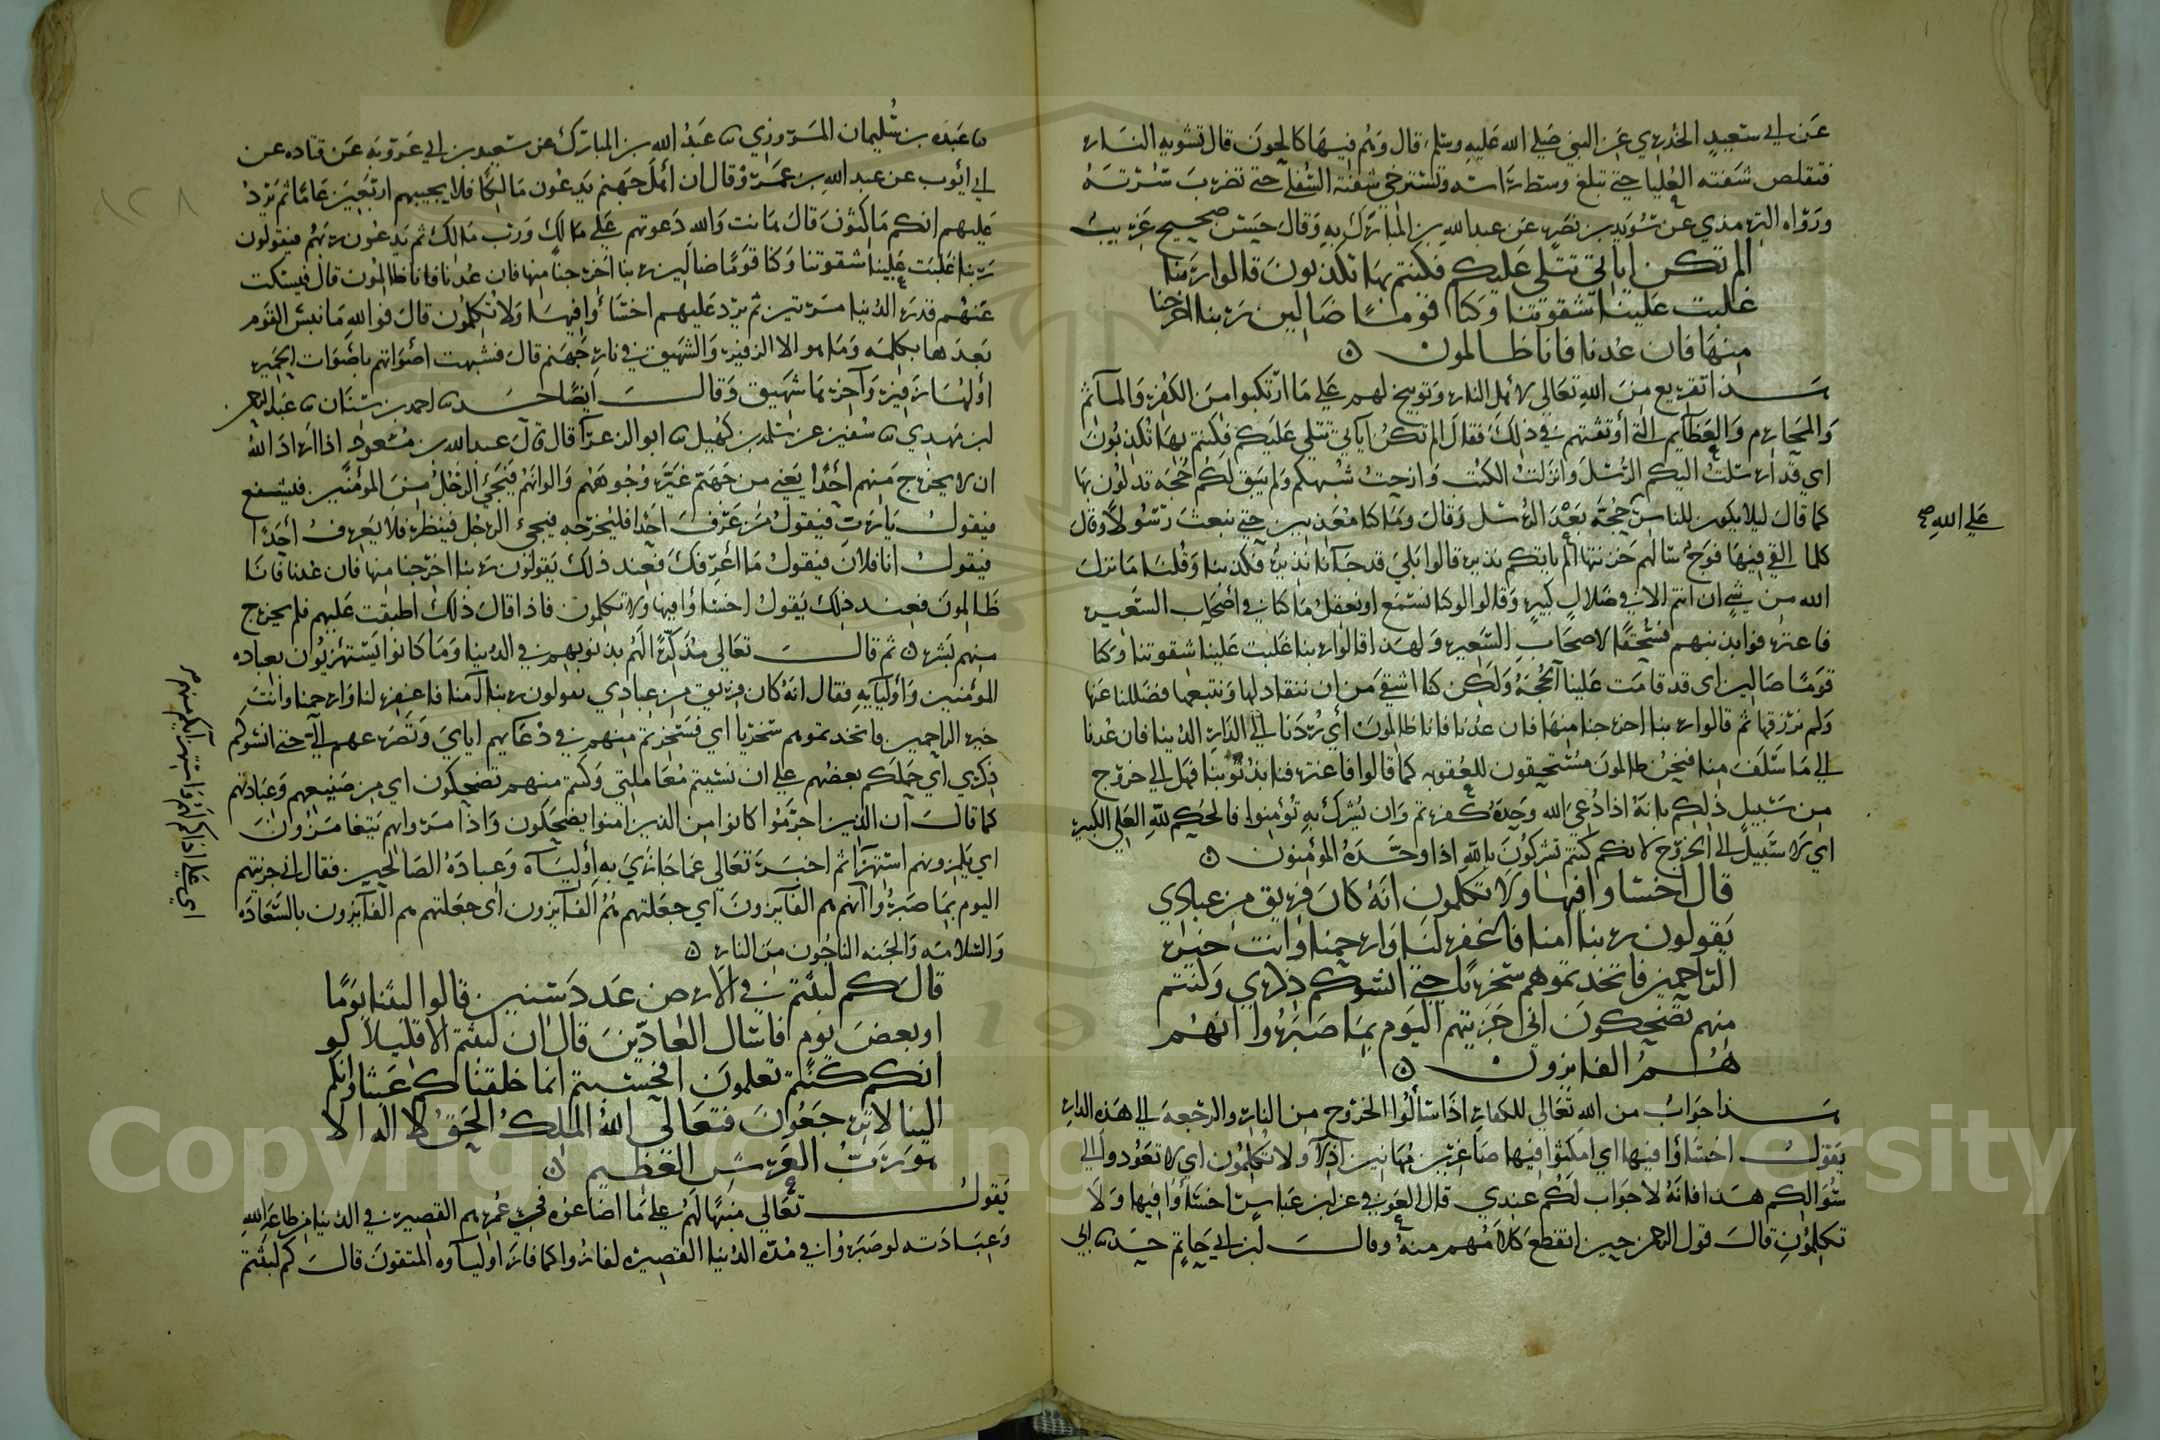 عن ابي سعيد الخدري عن النبي صلى الله عليه وسلم قال وهم فيها كالحون قال تشويه النار
فتقلص شفته العليا حتى تبلغ وسط راسه وتسترخي شفته السفلى حتى تضرب سرته
ورواه الترمذي عن سويد بن نصر عن عبد الله بن المبارك به وقال حسن صحيح غريب
الم تكن اياتي تتلى عليكم فكنتم بها تكذبون قالوا ربنا
غلبت علينا شقوتنا وكنا قوما ضالين ربنا اخرجنا
منها فان عدنا فانا ظالمون ○
هذا تقريع من الله تعالى لاهل النار وتوبيخ لهم على ما ارتكبوا من الكفر والمآثم
والمحارم والعظآيم التي أوبقتهم في ذلك فقال الم تكن آياتي تتلى عليكم فكنتم بها تكذبون
اي قد ارسلت اليكم الرسل وانزلت الكتب وازحت شبهكم ولم يبق لكم حجة تدلون بها
كما قال ليلا يكون للناس حجة بعد الرسل وقال وما كنا معذبين حتى نبعث رسولا وقال
على الله صح
كلما القي فيها فوج سالهم خزنتها ألم ياتكم نذير قالوا بلى قد جآنا نذير فكذبنا وقلنا ما نزل
الله من شي ان انتم الا في ضلال كبير وقالوا لو كنا نسمع او نعقل ما كنا في أصحاب السعير
فاعترفوا بذنبهم فسحقا لاصحاب السعير ولهذا قالوا ربنا غلبت علينا شقوتنا وكنا
قوما ضالين اي قد قامت علينا الحجة ولكن كنا اشقى من ان ننقاد لها ونتبعها فضللنا عنها
ولم نرزقها ثم قالوا ربنا اخرجنا منها فان عدنا فانا ظالمون أي ردنا الى الدار الدنيا فان عدنا
الى ما سلف منا فنحن ظالمون مستحقون للعقوبه كما قالوا فاعترفنا بذنوبنا فهل الى خروج
من سبيل ذلكم بانه اذا دعي الله وحده كفرتم وان يشرك به تؤمنوا فالحكم لله العلي الكبير
اي لا سبيل الى الخروج لانكم كنتم تشركون بالله اذا وحده المؤمنون ○
قال اخسئوا فيها ولا تكلمون انه كان فريق من عبادي
يقولون ربنا امنا فاغفر لنا وارحمنا وانت خير
الراحمين فاتخذتموهم سخريا حتى انسوكم ذكري وكنتم
منهم تضحكون اني جزيتهم اليوم بما صبروا انهم
هم الفايزون ○
هذا جواب من الله تعالى للكفار اذا سألوا الخروج من النار والرجعة الى هذه الدار
يقول اخسأوا فيها اي امكثوا فيها صاغرين مهانين اذلآ ولا تكلمون اي لا تعودوا الى
سؤالكم هذا فانه لا جواب لكم عندي قال العوفي عن ابن عباس اخسأوا فيها ولا
تكلمون قال قول الرحمن حين انقطع كلامهم منه وقال ابن ابي حاتم حدنا ابي
نا عبده بن سليمان المروزي نا عبد الله بن المبارك عن سعيد بن ابي عروبه عن قتاده عن
ابي أيوب عن عبد الله بن عمرو قال ان اهل جهنم يدعون مالكا فلا يجيبهم اربعين عاما ثم يرد
عليهم انكم ماكثون قال هانت والله دعوتهم على مالك ورب مالك ثم يدعون ربهم فيقولون
ربنا غلبت علينا شقوتنا وكنا قوما ضالين ربنا اخرجنا منها فان عدنا فانا ظالمون قال فيسكت
عنهم قدر الدنيا مرتين ثم يرد عليهم اخسأوا فيها ولا تكلمون قال فوالله ما نبس القوم
بعدها بكلمه وما هو الا الزفير والشهيق في نار جهنم قال فشبهت أصواتهم باصوات الحمير
أولها زفير وآخرها شهيق وقال أيضا حدنا احمد بن سنان نا عبد الرحمن
ابن مهدي نا سفين عن سلمه بن كهيل نا ابو الزعرآ قال قال عبد الله بن مسعود اذا اراد الله
ان لا يخرج منهم أحدا يعني من جهنم غير وجوههم والوانهم فيجئ الرجل من المؤمنين فيشفع
فيقول يا رب فيقول من عرف احدا فليخرجه فيجئ الرجل فينظر فلا يعرف أحدا
فيقول انا فلان فيقول ما أعرفك فعند ذلك يقولون ربنا اخرجنا منها فان عدنا فانا
ظالمون فعند ذلك يقول اخسأوا فيها ولا تكلمون فاذا قال ذلك اطبقت عليهم فلم يخرج
منهم بشر ○ ثم قال تعالى مذكرا لهم بذنوبهم في الدنيا وما كانوا يستهزئون بعباده
المؤمنين وأوليآيه فقال انه كان فريق من عبادي يقولون ربنا آمنا فاغفر لنا وارحمنا وانت
خير الراحمين فاتخذتموهم سخريا اي فسخرتم منهم في دعآيهم اياي وتضرعهم الي حتى انسوكم
ذكري اي حملكم بعضهم على ان نسيتم معاملتي وكنتم منهم تضحكون اي من صنيعهم وعبادتهم
كما قال ان الذين اجرموا كانوا من الذين امنوا يضحكون واذا مروا بهم يتغامزون
اي يلمزونهم استهزآ ثم اخبر تعالى عما جازى به أوليآه وعباده الصالحين فقال اني جزيتهم
اليوم بما صبروا انهم هم الفآيزون اي جعلتهم هم الفآيزون اي جعلتهم هم الفآيزون بالسعادة
والسلامة والجنه الناجون من النار ○
قال كم لبثتم في الارض عدد سنين قالوا لبثنا يوما
او بعض يوم فاسال العادين قال ان لبثتم الا قليلا لو
انكم كنتم تعلمون افحسبتم انما خلقناكم عبثا وانكم
الينا لا ترجعون فتعالى الله الملك الحق لا اله الا
هو رب العرش العظيم ○
يقول تعالى منبها لهم على ما اضاعوه في عمرهم القصير في الدنيا من طاعة الله
وعبادته لو صبروا في مدة الدنيا القصيره لفازوا كما فاز اوليآوه المتقون قال كم لبثتم
١٢٨